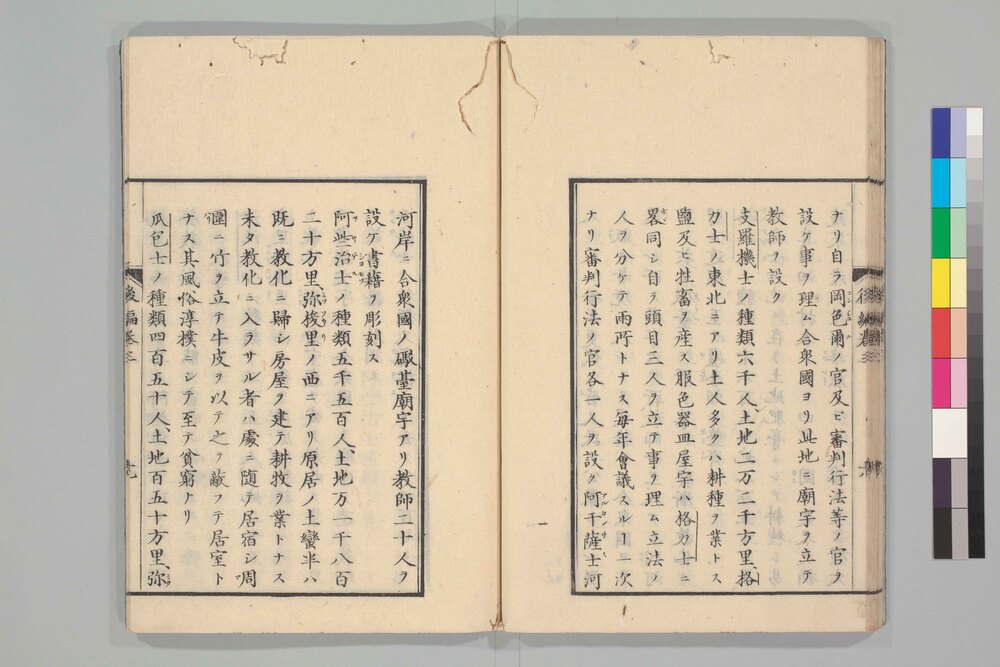 ナリ自ラ岡色爾ノ官及ヒ審判行法等ノ官ヲ
設ケ事ヲ理ム合衆國ヨリ此地ニ廟宇ヲ立テ
教師ヲ設ク
支羅機士ノ種類六千人土地二万二千方里、格
カ士ノ東北ニアリ土人多クハ耕種ヲ業トス
鹽及ヒ牲畜ヲ産ス服色器皿屋宇ハ格カ士ニ
畧同シ自ラ頭目三人ヲ立テ事ヲ理ム立法ノ
人ヲ分ケテ兩所トナス每年會議スルヿ一次
ナリ審判行法ノ官各一人ヲ設ク阿干薩士河
アルカンサス
河岸ニ合衆國ノ礟臺廟宇アリ教師二十人ヲ
設ケ書籍ヲ彫刻ス
阿些治士ノ種類五千五百人、土地万一千八百
二十方里、弥梭里ノ西ニアリ原居ノ土蠻半ハ
既ニ教化ニ歸シ房屋ヲ建テ耕牧ヲ業トナス
未タ教化ニ入ラサル者ハ處ニ隨テ居宿シ周
圍ニ竹ヲ立テ牛皮ヲ以テ之ヲ蔽フテ居室ト
ナス其風俗淳樸ニシテ至テ貧窮ナリ
瓜包士ノ種類四百五十人、土地百五十方里、弥
後編卷三
十九